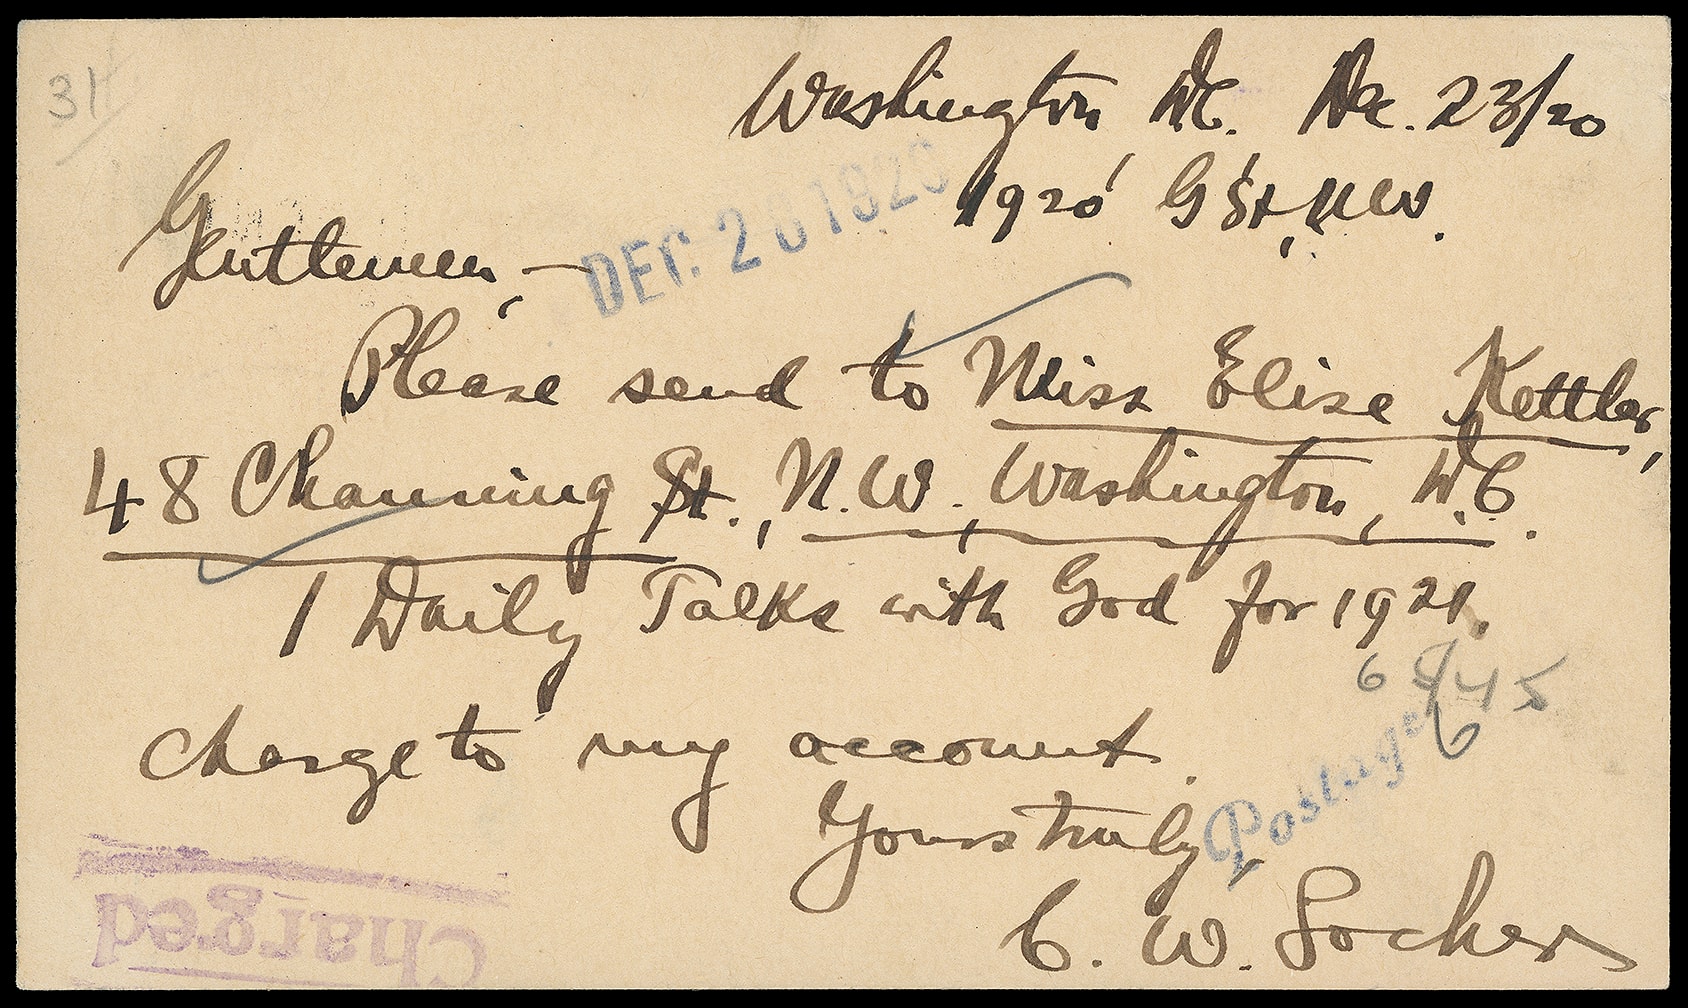 31
Washington, D.C. Dec. 23/20
1920 G St., N.W.
DEC. 2 1920
Gentlemen, —
Please send to Miss Elise Kettler,
48 Channing St., N.W., Washington, D.C.
1 Daily Talks with God for 1921.
6 45
6
Postage
charge to my account.
Yours truly,
C. W. Locher
Charged